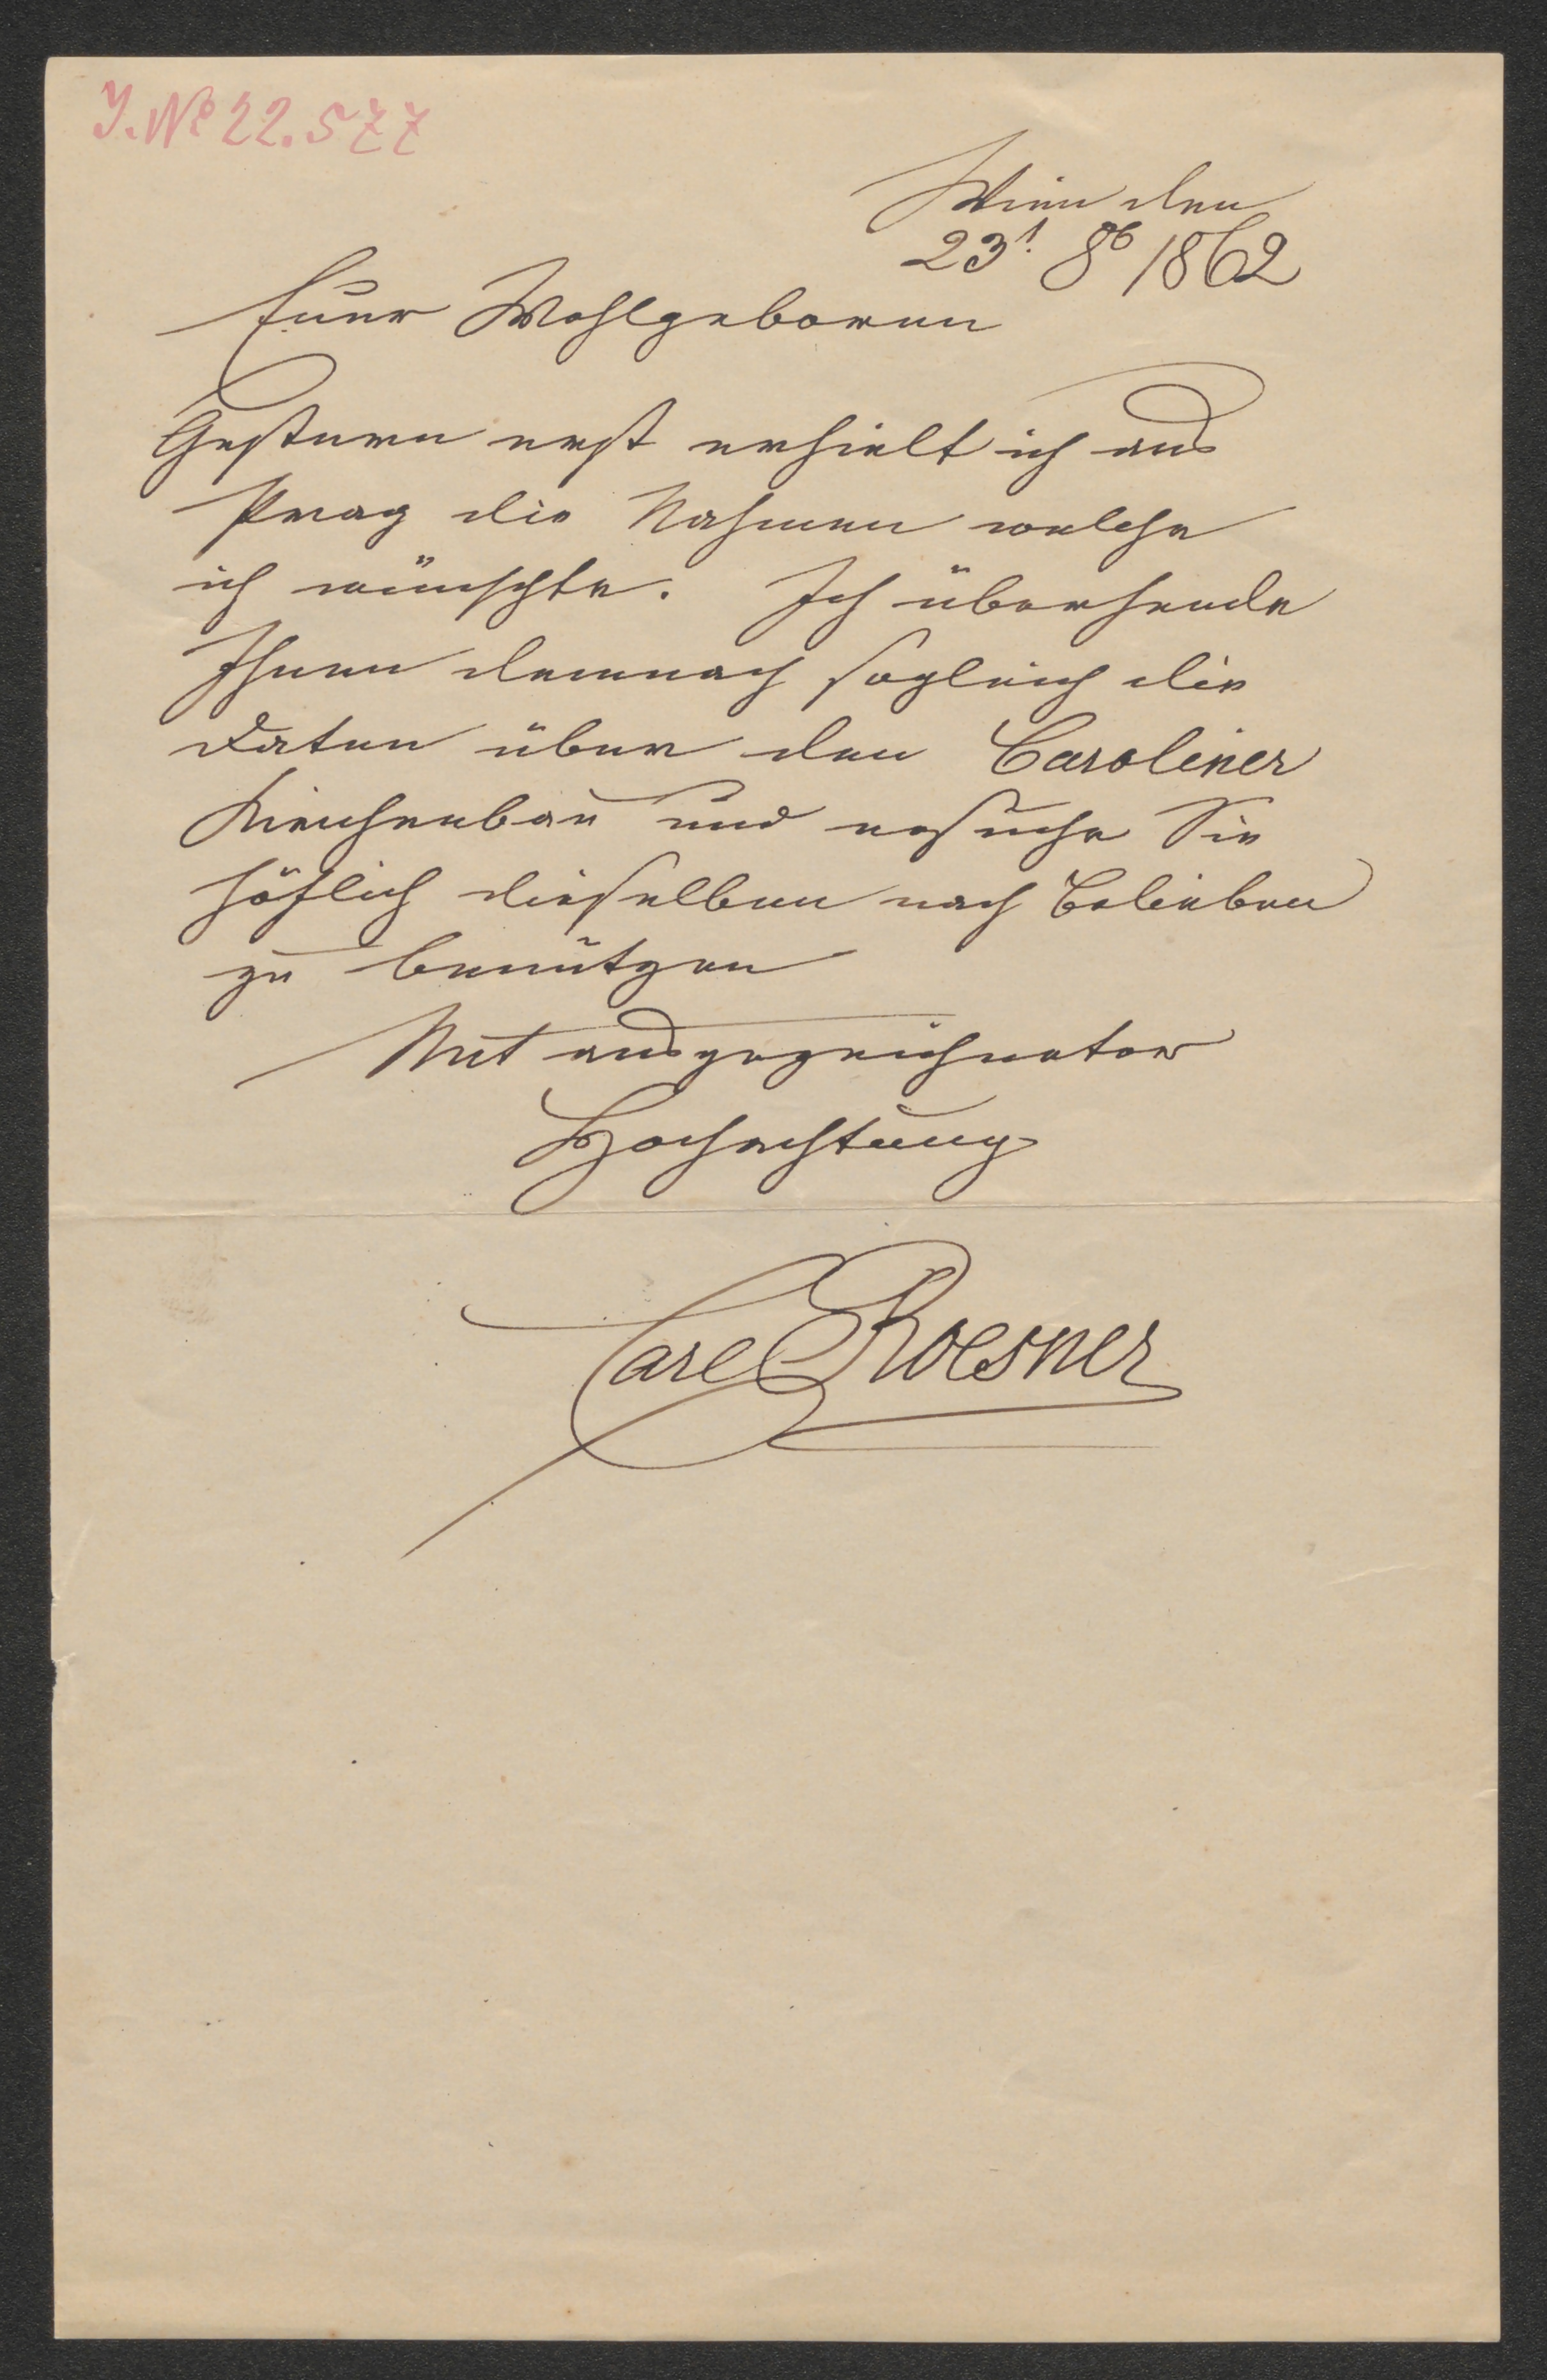 J. No 22.577
Wien den
23t. 8b 1862
Euer Wohlgeboren
Gestern erst erhielt ich aus
Prag die Nahmen welche
ich wünschte. Ich übersende
Ihnen demnach sogleich die
Daten über den Caroliner
Kirchenbau und ersuche Sie
höflich dieselben nach Belieben
zu benützen
Mit ausgezeichneter
Hochachtung
Carl Roesner